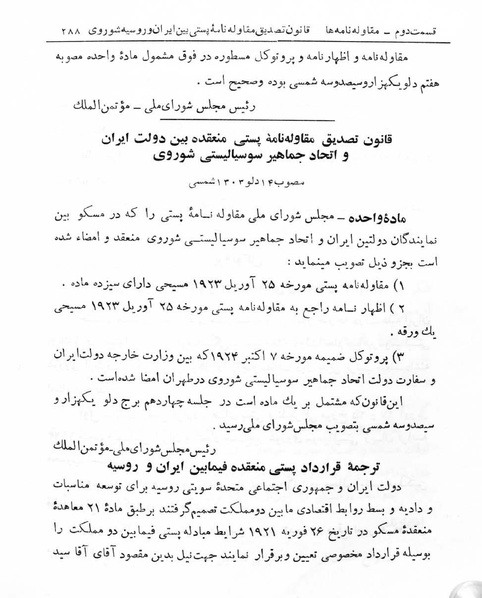 قسمت دوم – مقاوله‌نامه‌ها قانون تصدیق مقاوله‌نامهٔ پستی بین ایران و روسیه شوروی ۲۸۸
مقاوله‌نامه و اظهارنامه و پروتوکل مسطوره در فوق مشمول مادهٔ واحده مصوبه
هفتم دلو یکهزار و سیصد و سه شمسی بوده و صحیح است .
رئیس مجلس شورای ملی – مؤتمن الملك
قانون تصدیق مقاوله‌نامهٔ پستی منعقده بین دولت ایران
و اتحاد جماهیر سوسیالیستی شوروی
مصوب ۱۴ دلو ۱۳۰۳ شمسی
مادهٔ واحده – مجلس شورای ملی مقاوله نامهٔ پستی را که در مسکو بین
نمایندگان دولتین ایران و اتحاد جماهیر سوسیالیستی شوروی منعقد و امضاء شده
است بجزو ذیل تصویب مینماید :
۱) مقاوله‌نامه پستی مورخه ۲۵ آوریل ۱۹۲۳ مسیحی دارای سیزده ماده .
۲ ) اظهار نامه راجع به مقاوله‌نامه پستی مورخه ۲۵ آوریل ۱۹۲۳ مسیحی
یك ورقه .
۳) پروتوکل ضمیمه مورخه ۷ اکتبر ۱۹۲۴ که بین وزارت خارجه دولت ایران
و سفارت دولت اتحاد جماهیر سوسیالیستی شوروی در طهران امضا شده است .
این قانون که مشتمل بر یك ماده است در جلسه چهاردهم برج دلو یکهزار و
سیصد و سه شمسی بتصویب مجلس شورای ملی رسید .
رئیس مجلس شورای ملی – مؤتمن الملك
ترجمهٔ قرارداد پستی منعقده فیمابین ایران و روسیه
دولت ایران و جمهوری اجتماعی متحدهٔ سویتی روسیه برای توسعه مناسبات
و دادیه و بسط روابط اقتصادی مابین دو مملکت تصمیم گرفتند بر طبق مادهٔ ۲۱ معاهدهٔ
منعقدهٔ مسکو در تاریخ ۲۶ فوریه ۱۹۲۱ شرایط مبادله پستی فیمابین دو مملکت را
بوسیله قرارداد مخصوصی تعیین و برقرار نمایند جهت نیل بدین مقصود آقای آقا سید